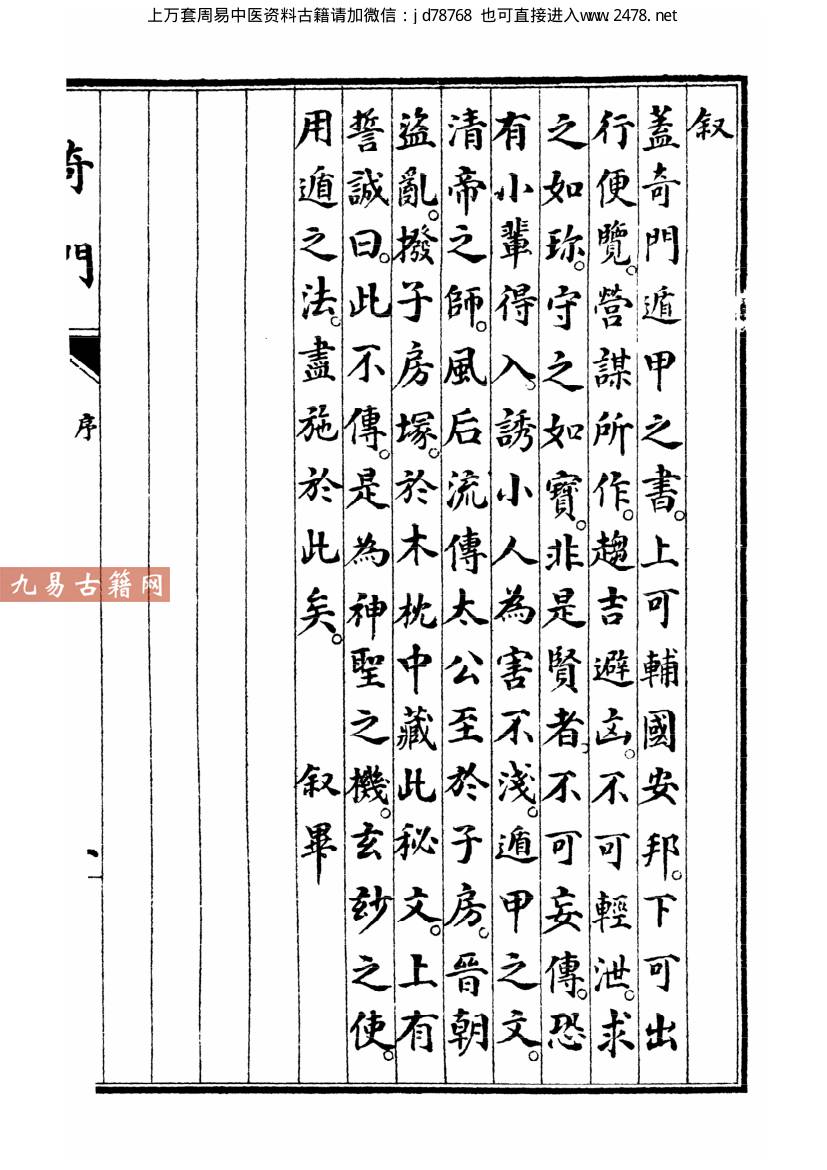 上万套周易中医资料古籍请加微信：jd78768 也可直接进入www.2478.net
叙
蓋奇門遁甲之書。上可輔國安邦。下可出
行便覽。營謀所作。趨吉避凶。不可輕泄。求
之如珎。守之如寳。非是賢者、不可妄傳。恐
有小輩得入、誘小人為害不淺。遁甲之文。
清帝之師。風后流傳太公至於子房。晉朝
盜亂。撥子房塚。於木枕中藏此秘文。上有
誓誠曰。此不傳。是為神聖之機。玄玅之使。
用遁之法。盡施於此矣。 叙畢
奇門
序
九易古籍网